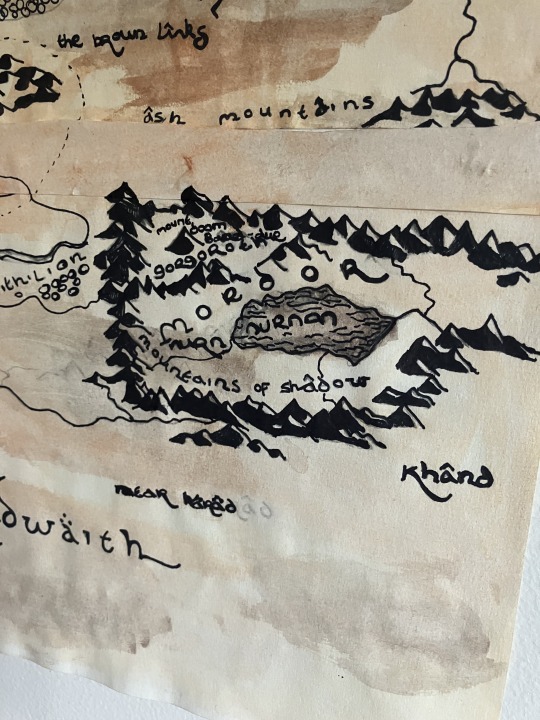 the brown links
âsh mountains
mount doom
Barad-dûr
gorgoroth
ithilian
MORDOR
nurn
nurnan
mountains of shâdow
Khând
near harâd
dwäith